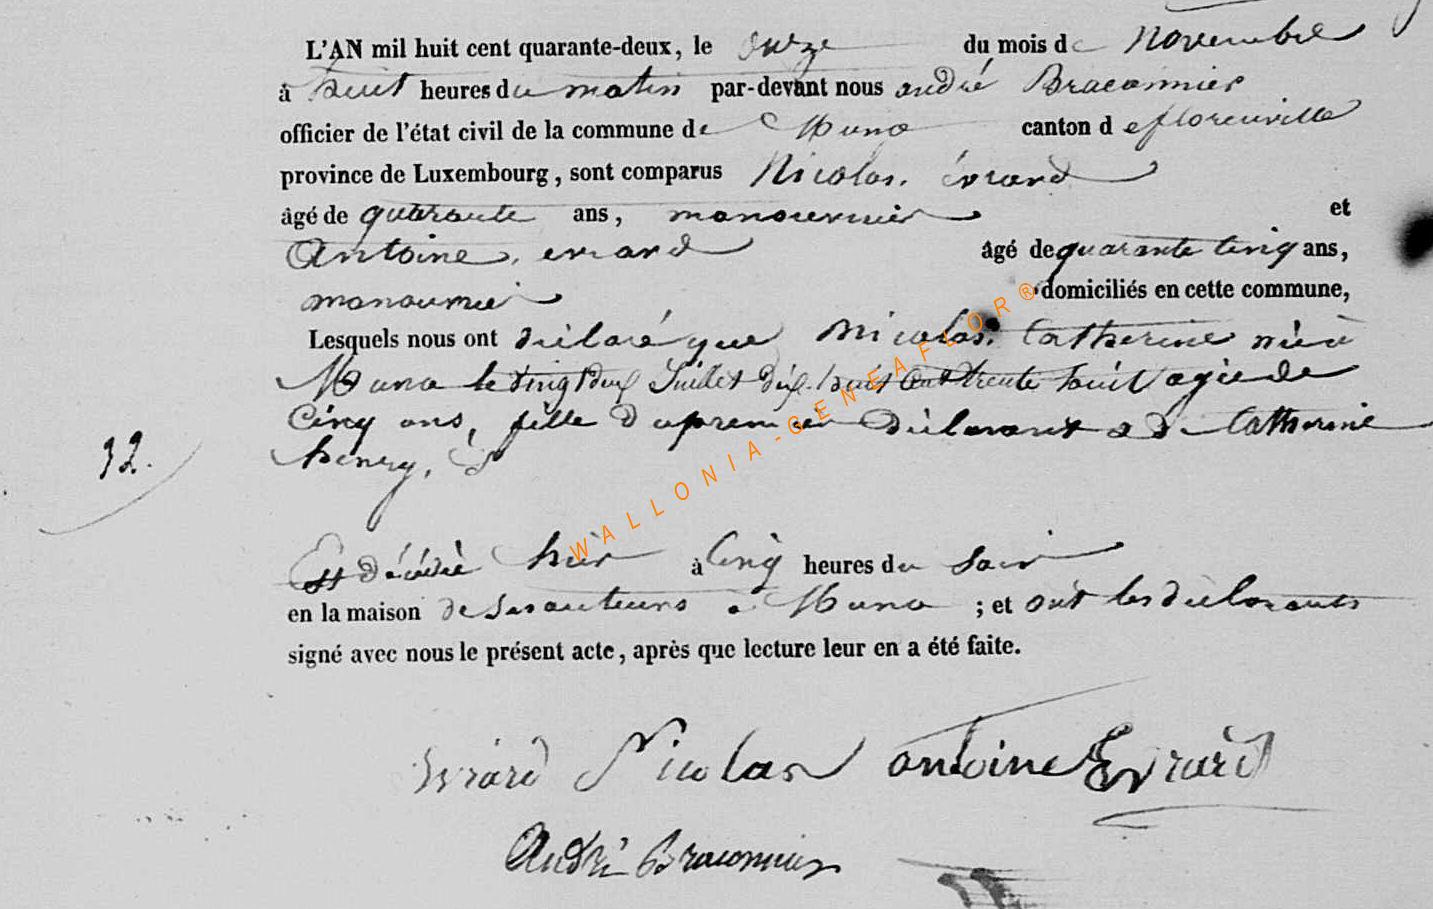 L'AN mil huit cent quarante-deux, le onze du mois de Novembre
à huit heures du matin par-devant nous andré Braconnier
officier de l'état civil de la commune de Muno canton de florenville
province de Luxembourg, sont comparus Nicolas. évrard
âgé de quarante ans, manouvrier et
Antoine, evrard âgé de quarante cinq ans,
manouvrier domiciliés en cette commune,
Lesquels nous ont déclaré que Nicolas. Catherine née à
Muno le vingt deux Juillet dix-huit Cent trente huit agée de
Cinq ans, fille du premier déclarant & de Catherine
henry,
32.
Est décédée hier à Cinq heures du Soir
en la maison de Ses auteurs à Muno ; et ont les déclarants
signé avec nous le présent acte, après que lecture leur en a été faite.
Evrard Nicolas antoine Evrard
André Braconnier
WALLONIA-GENEAFLOR®